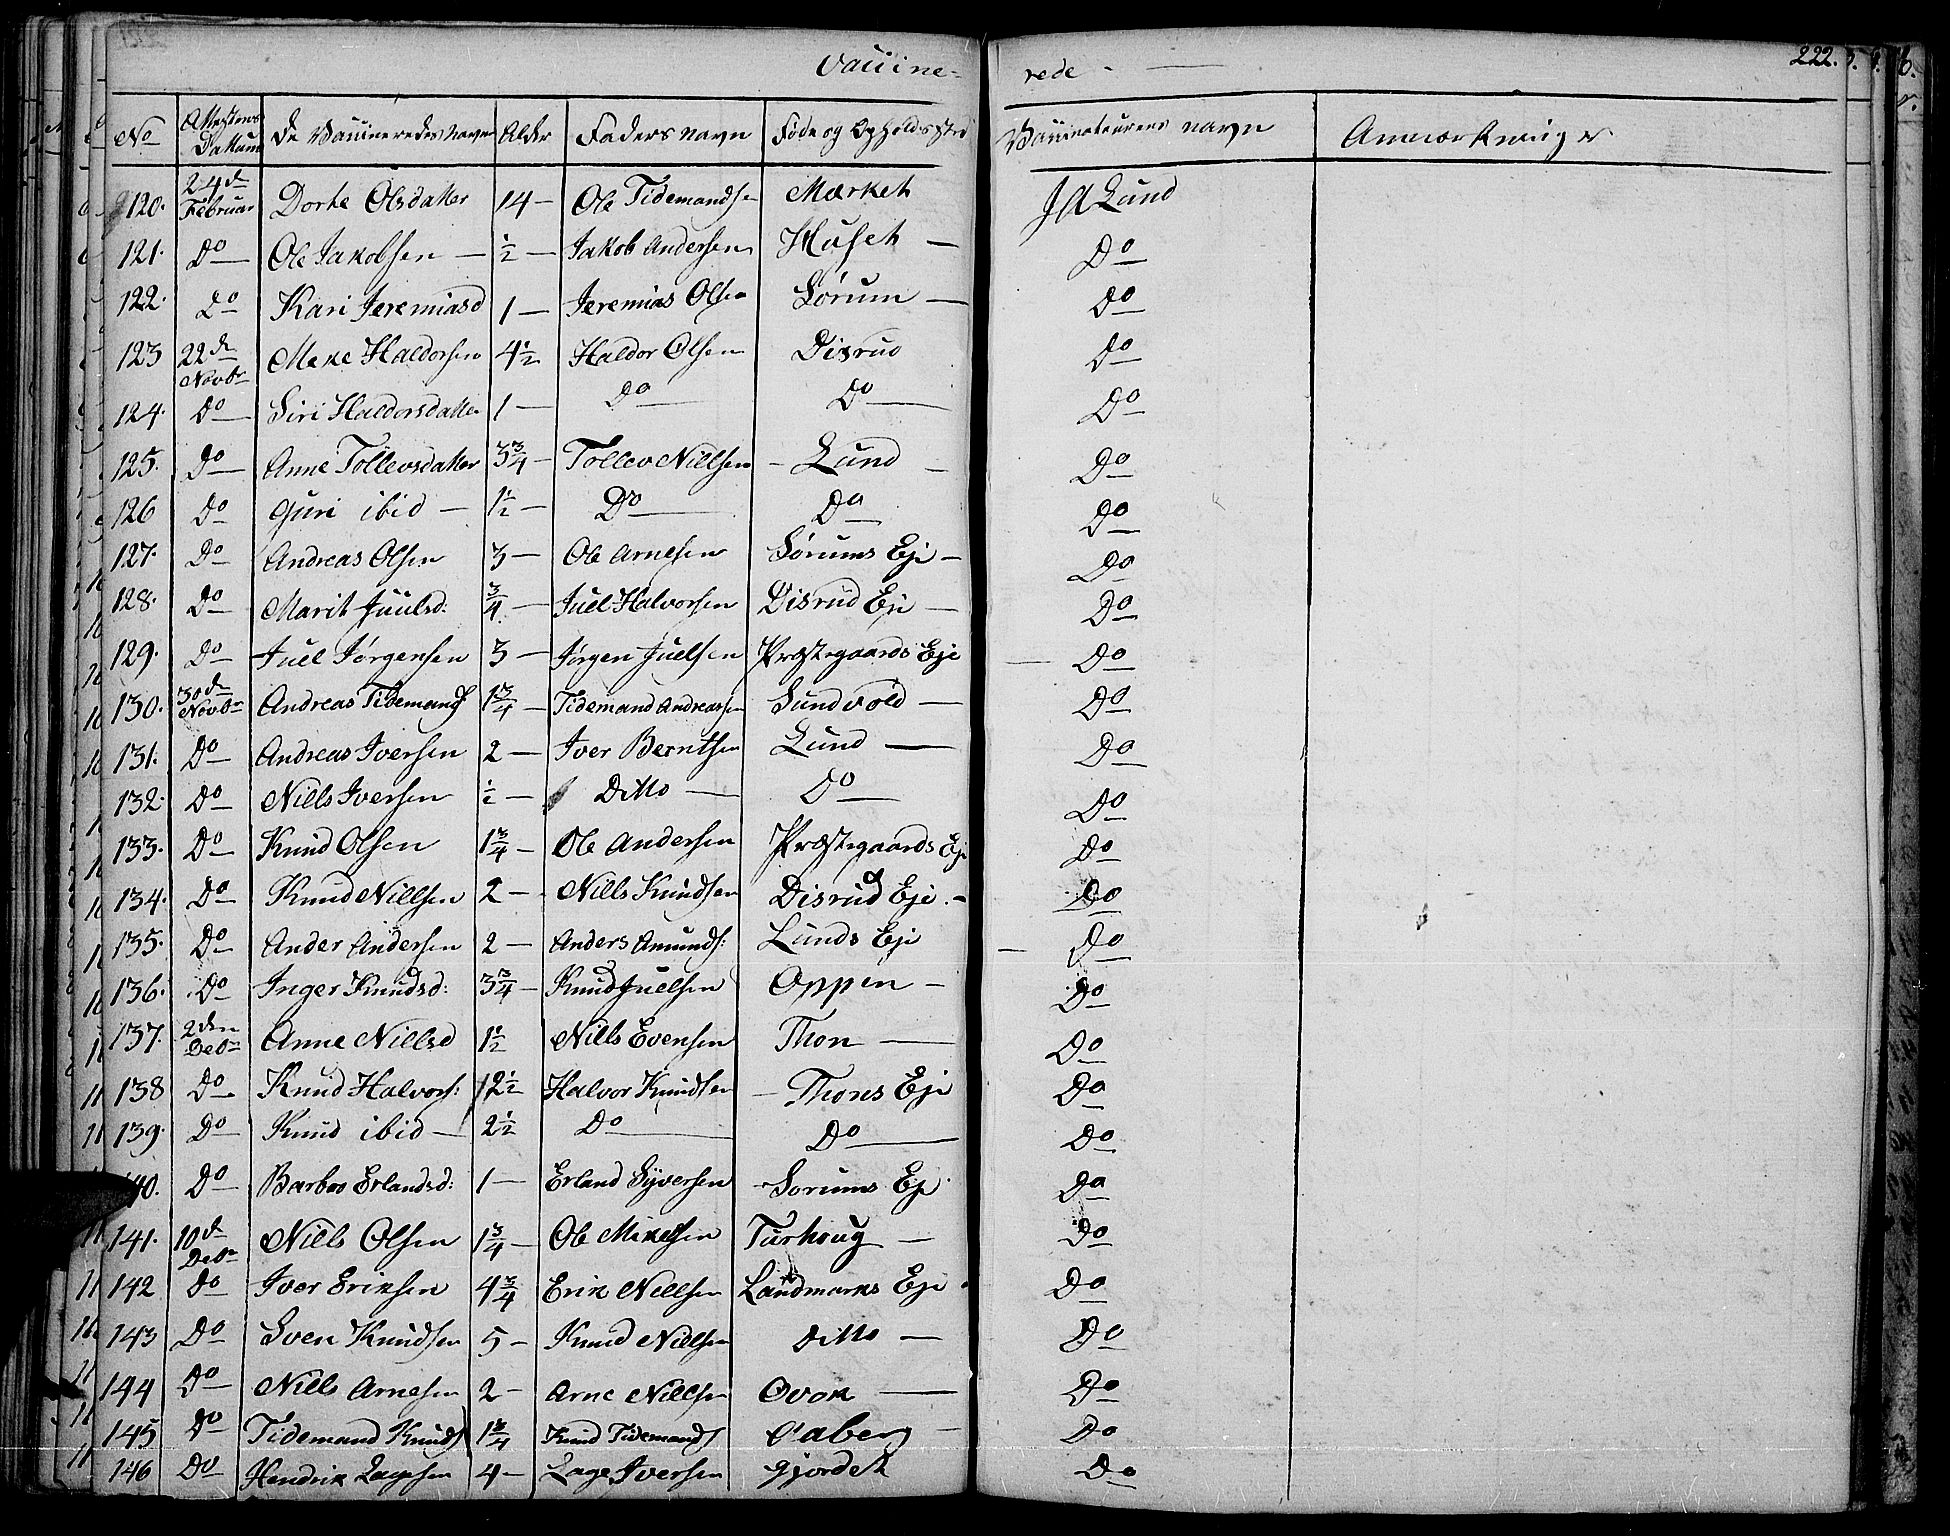 Vaccine- rede - 222.
No | Attestens Datum | De Vaccineredes Navn | Alder | Faders navn | Føde og Opholds Sted | Vaccinateurens navn | Anmærkninger
120. 24de Februar Dorte Olsdatter 14 - Ole Tidemandsen Mærket J A Lund
121. Do Ole Jakobsen - ½ - Jakob Andersen Huset - Do
122. Do Kari Jeremiasd 1 - Jeremias Olsen Sørum - Do
123 22de Novbr Meke Haldorsen 4½ Haldor Olsen Disrud Do
124. Do Siri Haldorsdatter 1 - Do Do Do
125. Do Anne Tollevsdatter 3¾ - Tollev Nillsen - Lund - Do
126 Do Guri ibid - 1½ - Do Do Do
127. Do Andreas Olsen 3 - Ole Arnesen Sørums Eje - Do
128. Do Marit Juulsd: ¾ - Juel Halvorsen Disrud Eje - Do
129. Do Juel Jørgensen 5 - Jørgen Juelsen Præstegaards Eje - Do
130. 30de Novbr Andreas Tidemands 1¾ - Tidemand Andreassen Sundvold - Do
131. Do Andreas Iversen 2 - Iver Berntsen Lund - Do
132. Do Nills Iversen ½ - Ditto - Do Do
133. Do Knud Olsen 1¾ - Ole Andersen Præstegaards Eje Do
134. Do Knud Nillsen 2 - Nills Knudsen Disrud Eje. - Do
135. Do Ander Andersen 2 - Anders Amunds: Lunds Eje - Do
136. Do Inger Knudsd: 3¾ - Knud Juelsen Oppen - Do
137. 2den Debr Anne Nillsd 1½ Nills Evensen Thon - Do
138 Do Knud Halvors: 12½ Halvor Knudsen - Thons Eje Do
139. Do Knud ibid - 2½ Do Do Do
140. Do Barbro Erlandsd: 1 - Erland Syversen - Sorums Eje Do
141. 10de Debr Nills Olsen 1¾ - Ole Mikelsen Turhoug - Do
142 Do Iver Eriksen 4¾ Erik Nillsen Landmarks Eje Do
143 Do Sven Knudsen 5 - Knud Nillsen Ditto - Do
144 Do Nills Arnesen 2 - Arne Nillsen Qvok - Do
145 Do Tidemand Knuds 1¾ Knud Tidemands Aaberg - Do
146 Do Hendrik Lagesen 4 - Lage Iversen Gjordet Do